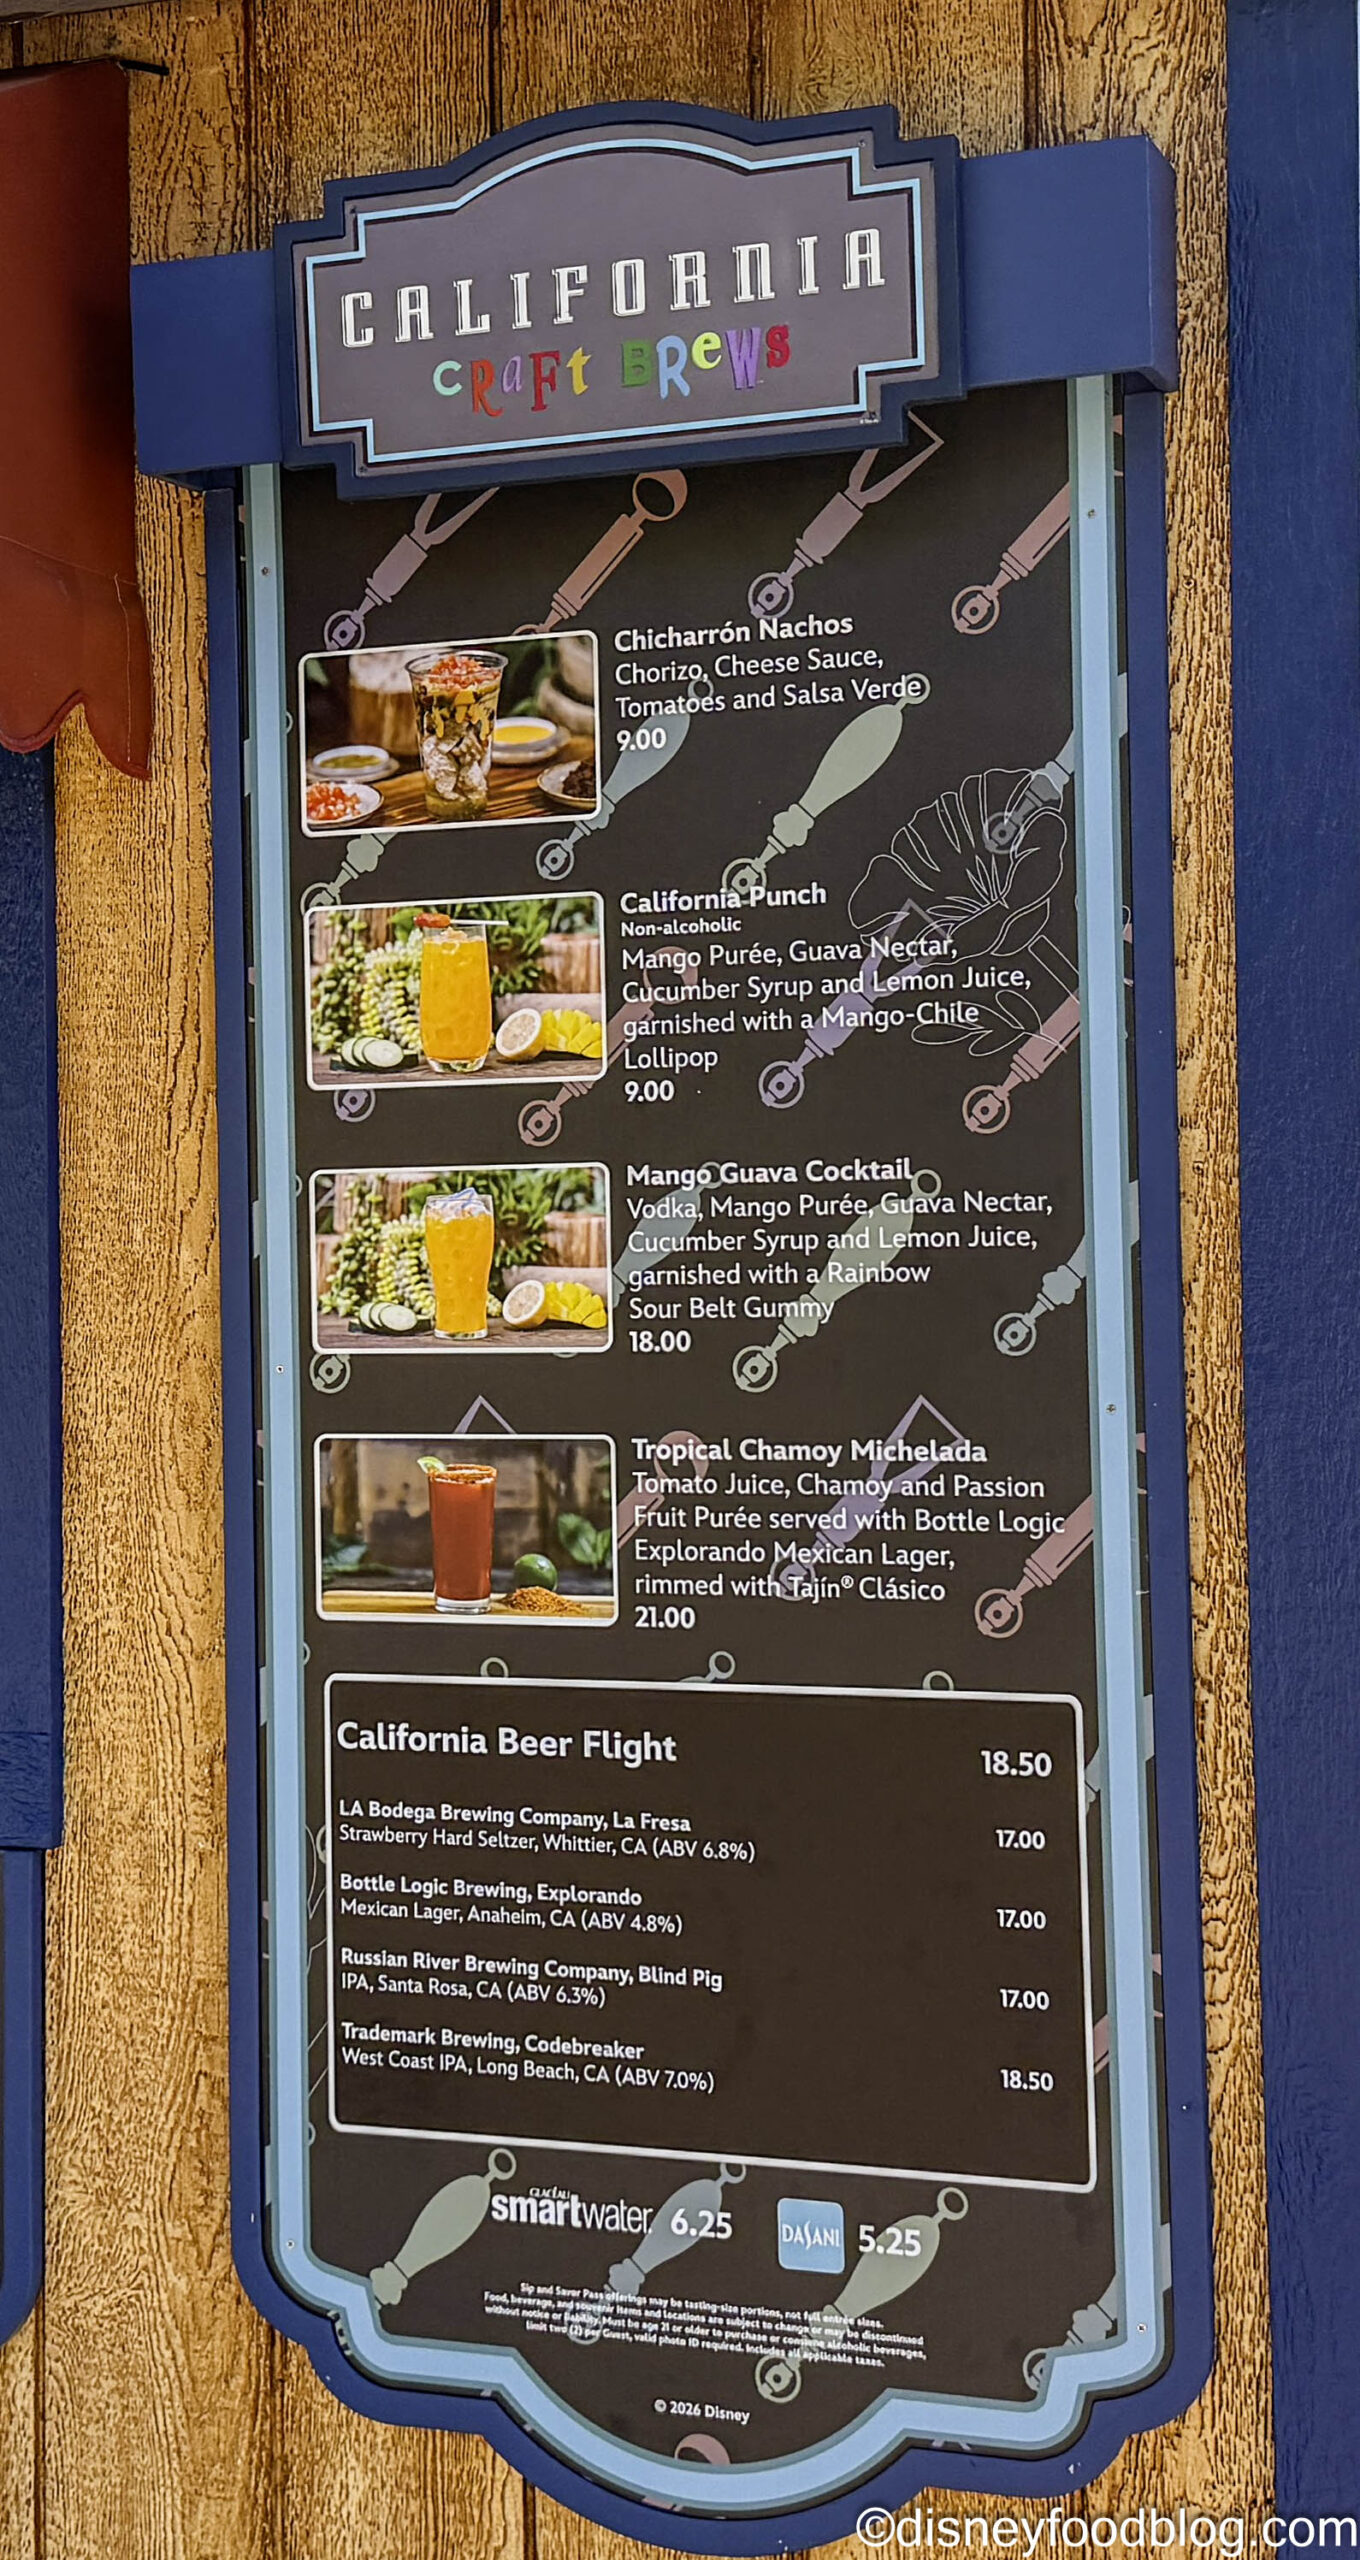 CALIFORNIA
CRaFt BReWs
Chicharrón Nachos
Chorizo, Cheese Sauce,
Tomatoes and Salsa Verde
9.00
California Punch
Non-alcoholic
Mango Purée, Guava Nectar,
Cucumber Syrup and Lemon Juice,
garnished with a Mango-Chile
Lollipop
9.00
Mango Guava Cocktail
Vodka, Mango Purée, Guava Nectar,
Cucumber Syrup and Lemon Juice,
garnished with a Rainbow
Sour Belt Gummy
18.00
Tropical Chamoy Michelada
Tomato Juice, Chamoy and Passion
Fruit Purée served with Bottle Logic
Explorando Mexican Lager,
rimmed with Tajín® Clásico
21.00
California Beer Flight 18.50
LA Bodega Brewing Company, La Fresa
Strawberry Hard Seltzer, Whittier, CA (ABV 6.8%) 17.00
Bottle Logic Brewing, Explorando
Mexican Lager, Anaheim, CA (ABV 4.8%) 17.00
Russian River Brewing Company, Blind Pig
IPA, Santa Rosa, CA (ABV 6.3%) 17.00
Trademark Brewing, Codebreaker
West Coast IPA, Long Beach, CA (ABV 7.0%) 18.50
GLACÉAU
smartwater 6.25 DASANI 5.25
Sip and Savor Pass offerings may be tasting-size portions, not full entrée sizes.
Food, beverage, and souvenir items and locations are subject to change or may be discontinued
without notice or liability. Must be age 21 or older to purchase or consume alcoholic beverages,
limit two (2) per Guest, valid photo ID required. Includes all applicable taxes.
© 2026 Disney
©disneyfoodblog.com